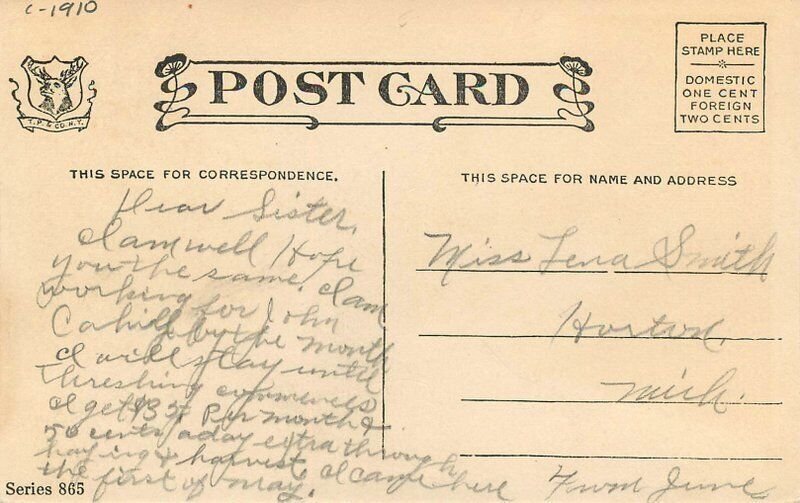 c-1910
POST CARD
PLACE
STAMP HERE
DOMESTIC
ONE CENT
FOREIGN
TWO CENTS
T. P. & CO. N.Y.
THIS SPACE FOR CORRESPONDENCE.
THIS SPACE FOR NAME AND ADDRESS
Dear Sister,
I am well Hope
you the same. I am
working for John
Cahill by the month
I will stay until
threshing commences
I get $35 Per month &
50 cents a day extra through
haying & harvest. I came here
the first of May.
From June
Miss Lena Smith
Horton,
Mich.
Series 865